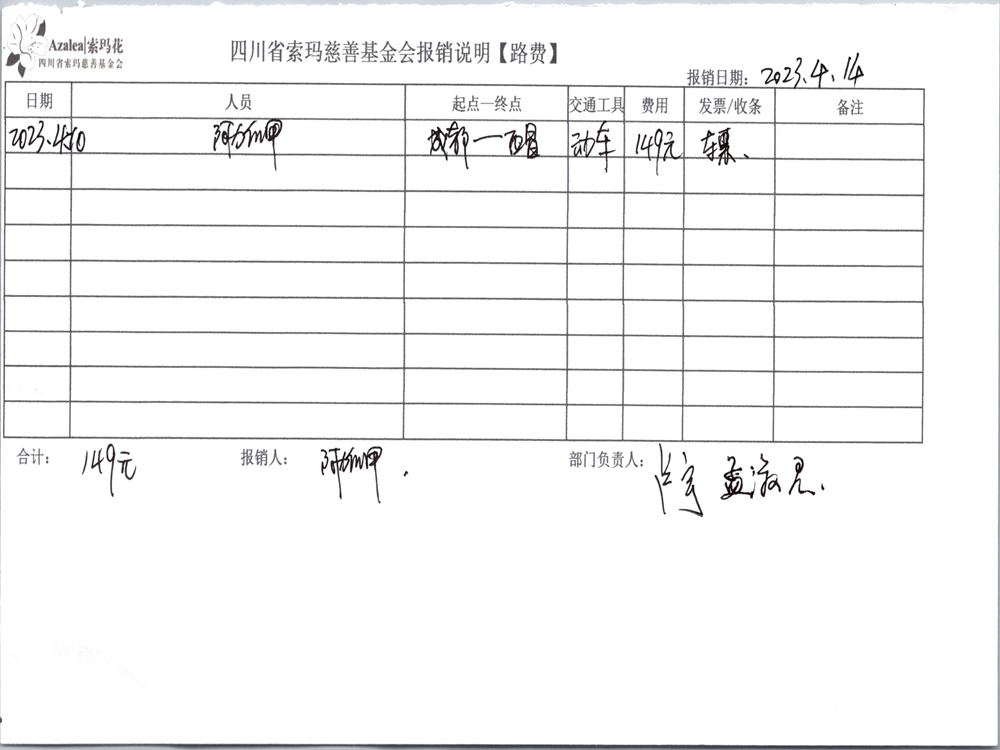 Azalea|索玛花
四川省索玛慈善基金会
四川省索玛慈善基金会报销说明【路费】
报销日期: 2023.4.14
日期 人员 起点—终点 交通工具 费用 发票/收条 备注
2023.4.10 成都—西昌 动车 149元 车票.
合计: 149元 报销人: 部门负责人: